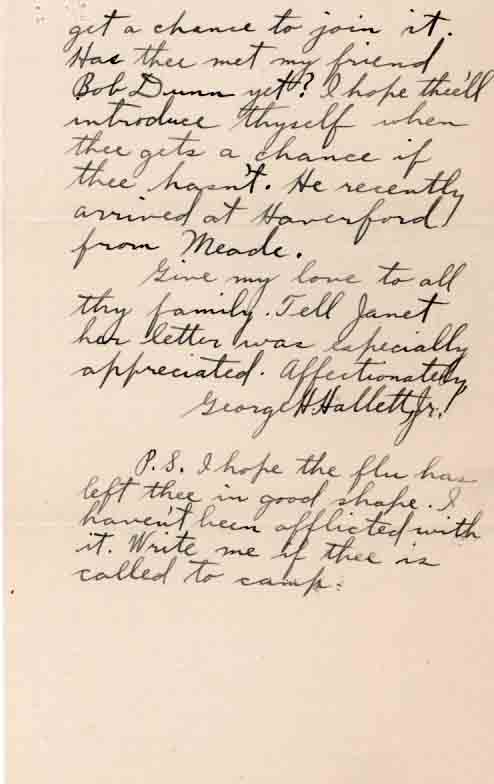 get a chance to join it.
Has thee met my friend
Bob Dunn yet? I hope thee'll
introduce thyself when
thee gets a chance if
thee hasn't. He recently
arrived at Haverford
from Meade.
Give my love to all
thy family. Tell Janet
her letter was especially
appreciated. Affectionately,
George H. Hallett, Jr.
P.S. I hope the flu has
left thee in good shape. I
haven't been afflicted with
it. Write me if thee is
called to camp.